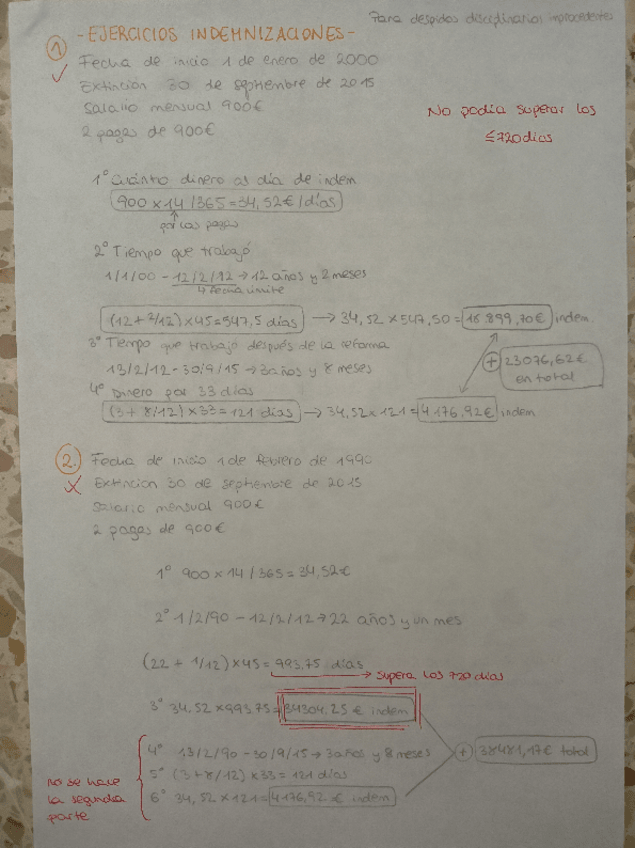 Para despidos disciplinarios improcedentes
- EJERCICIOS INDEMNIZACIONES -
① Fecha de inicio 1 de enero de 2000
✓ Extinción 30 de septiembre de 2015
Salario mensual 900€
2 pagas de 900€
No podía superar los
≤720 días
1º Cuánto dinero al día de indem
900 x 14 / 365 = 34,52 € / días
por las pagas
2º Tiempo que trabajó
1/1/00 - 12/2/12 → 12 años y 2 meses
↳ Fecha límite
(12 + 2/12) x 45 = 547,5 días → 34,52 x 547,50 = 18.899,70€ indem.
3º Tiempo que trabajo después de la reforma
13/2/12 - 30/9/15 → 3 años y 8 meses
+ 23076,62€
en total
4º Dinero por 33 días
(3 + 8/12) x 33 = 121 días → 34,52 x 121 = 4176,92€ indem
②. Fecha de inicio 1 de febrero de 1990
✗ Extinción 30 de septiembre de 2015
Salario mensual 900€
2 pagas de 900€
1º 900 x 14 / 365 = 34,52€
2º 1/2/90 - 12/2/12 → 22 años y un mes
(22 + 1/12) x 45 = 993,75 días
→ Supera los 720 días
3º 34,52 x 993,75 = 34304,25 € indem
4º 13/2/90 - 30/9/15 → 3 años y 8 meses
+ 38481,17€ total
5º (3 + 8/12) x 33 = 121 días
6º 34,52 x 121 = 4176,92 € indem
No se hace
la segunda
parte